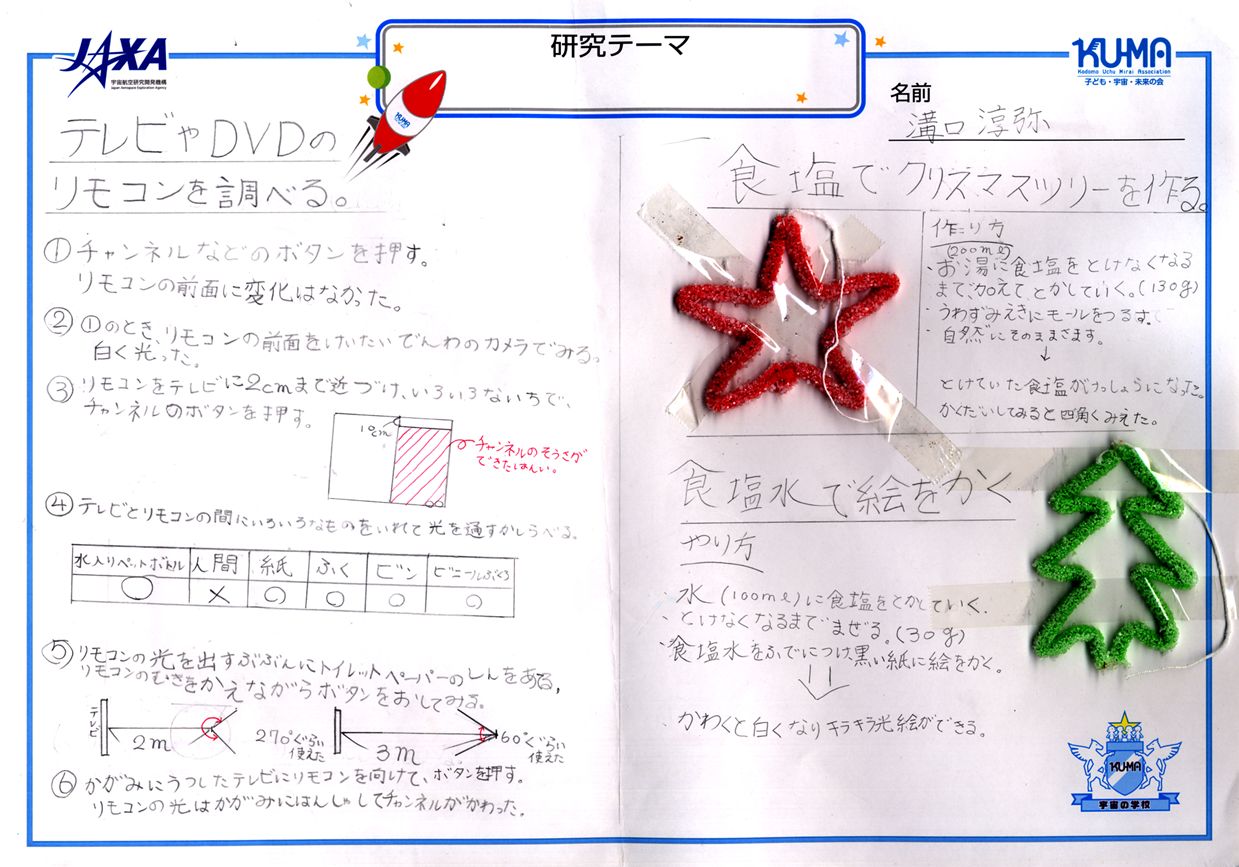 JAXA
宇宙航空研究開発機構
Japan Aerospace Exploration Agency
研究テーマ
KUMA
Kodomo Uchu Mirai Association
子ども・宇宙・未来の会
KUMA
名前
溝口 淳弥
テレビやDVDの
リモコンを調べる。
① チャンネルなどのボタンを押す。
リモコンの前面に変化はなかった。
② ①のとき、リモコンの前面をけいたいでんわのカメラでみる。
白く光った。
③ リモコンをテレビに2cmまで近づけ、いろいろないちで、
チャンネルのボタンを押す。
10cm
チャンネルのそうさが
できたはんい。
④ テレビとリモコンの間にいろいろなものをいれて光を通すかしらべる。
水入りペットボトル 人間 紙 ふく ビン ビニールぶくろ
○ × ○ ○ ○ ○
⑤ リモコンの光を出すぶぶんにトイレットペーパーのしんをある,
リモコンのむきをかえながらボタンをおしてみる。
テレビ
2m
270°ぐらい
使えた
3m
60°ぐらい
使えた
⑥ かがみにうつしたテレビにリモコンを向けて、ボタンを押す。
リモコンの光はかがみにはんしゃしてチャンネルがかわった。
食塩でクリスマスツリーを作る。
作り方
(200mℓ)
・お湯に食塩をとけなくなる
まで、加えてとかしていく。(130g)
・うわずみえきにモールをつるす。
・自然にそのままさます。
↓
とけていた食塩がけっしょうになった。
かくだいしてみると四角くみえた。
食塩水で絵をかく
やり方
・水(100mℓ)に食塩をとかしていく、
・とけなくなるまでまぜる。(30g)
・食塩水をふでにつけ、黒い紙に絵をかく。
↓
・かわくと白くなりキラキラ光絵ができる。
KUMA
宇宙の学校